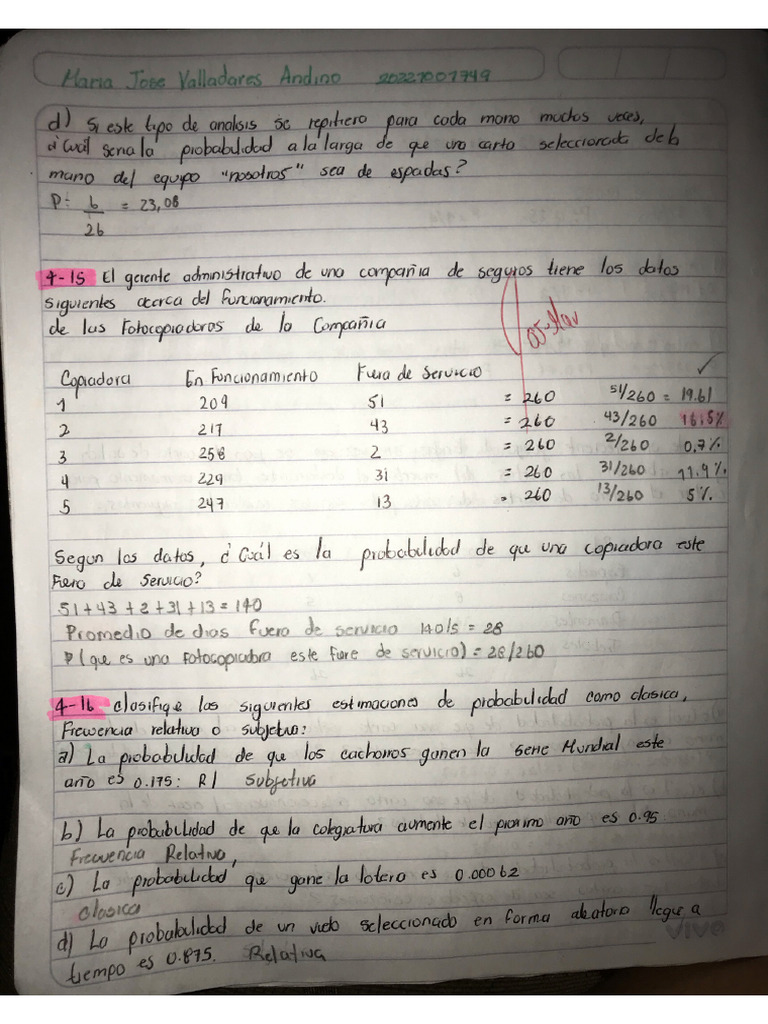 Maria Jose Valladares Andino 20221001749
d) Si este tipo de analisis se repitiera para cada mano muchas veces,
¿Cuál seria la probabilidad a la larga de que una carta seleccionada de la
mano del equipo "nosotros" sea de espadas?
P= 6/26 = 23,08
4-15 El gerente administrativo de una compañia de seguros tiene los datos
siguientes acerca del funcionamiento.
de las Fotocopiadoras de la Compañia
Copiadora En Funcionamiento Fuera de Servicio
1 209 51 = 260 51/260 = 19.61
2 217 43 = 260 43/260 16.5%
3 258 2 = 260 2/260 0,7%
4 229 31 = 260 31/260 11.9%
5 247 13 = 260 13/260 5%
Segun los datos, ¿Cuál es la probabilidad de que una copiadora este
Fuera de Servicio?
51+43+2+31+13=140
Promedio de dias fuera de servicio 140/5 = 28
P(que es una fotocopiadora este fuere de servicio) = 28/260
4-16 clasifique las siguientes estimaciones de probabilidad como clasica,
Frecuencia relativa o subjetiva:
a) La probabilidad de que los cachorros ganen la serie Mundial este
año es 0.175: R/ Subjetiva
b) La probabilidad de que la colegiatura aumente el proximo año es 0.95
Frecuencia Relativa,
c) La probabilidad que gane la lotera es 0.00062
Clasica
d) La probabilidad de un vuelo seleccionado en forma aleatoria llegue a
tiempo es 0.875. Relativa
vivo